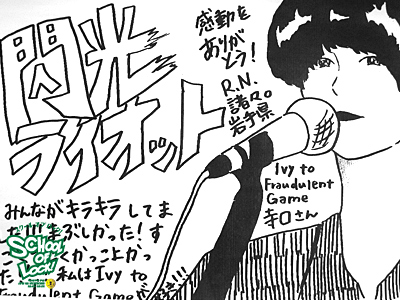 閃光
ライオット
感動を
ありが
とう！
R.N.
諸々。
岩手県
Ivy to
Fraudulent
Game
寺口さん
みんながキラキラしてま
した!!! まぶしかった！す
くかっこよかっ
た 私は Ivy to
Fraudulent Game
SCHOOL
OF
LOCK!